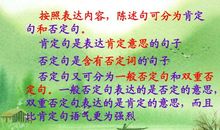 按照表达内容，陈述句可分为肯定
句和否定句。
肯定句是表达肯定意思的句子
否定句是含有否定词的句子
否定句又可分为一般否定句和双重否
定句。一般否定句表达的是否定的意思，
双重否定句表达的是肯定的意思，而且
比肯定句语气更为强烈